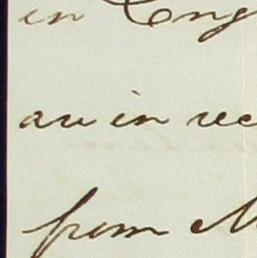 in Eng
are in rec
from M